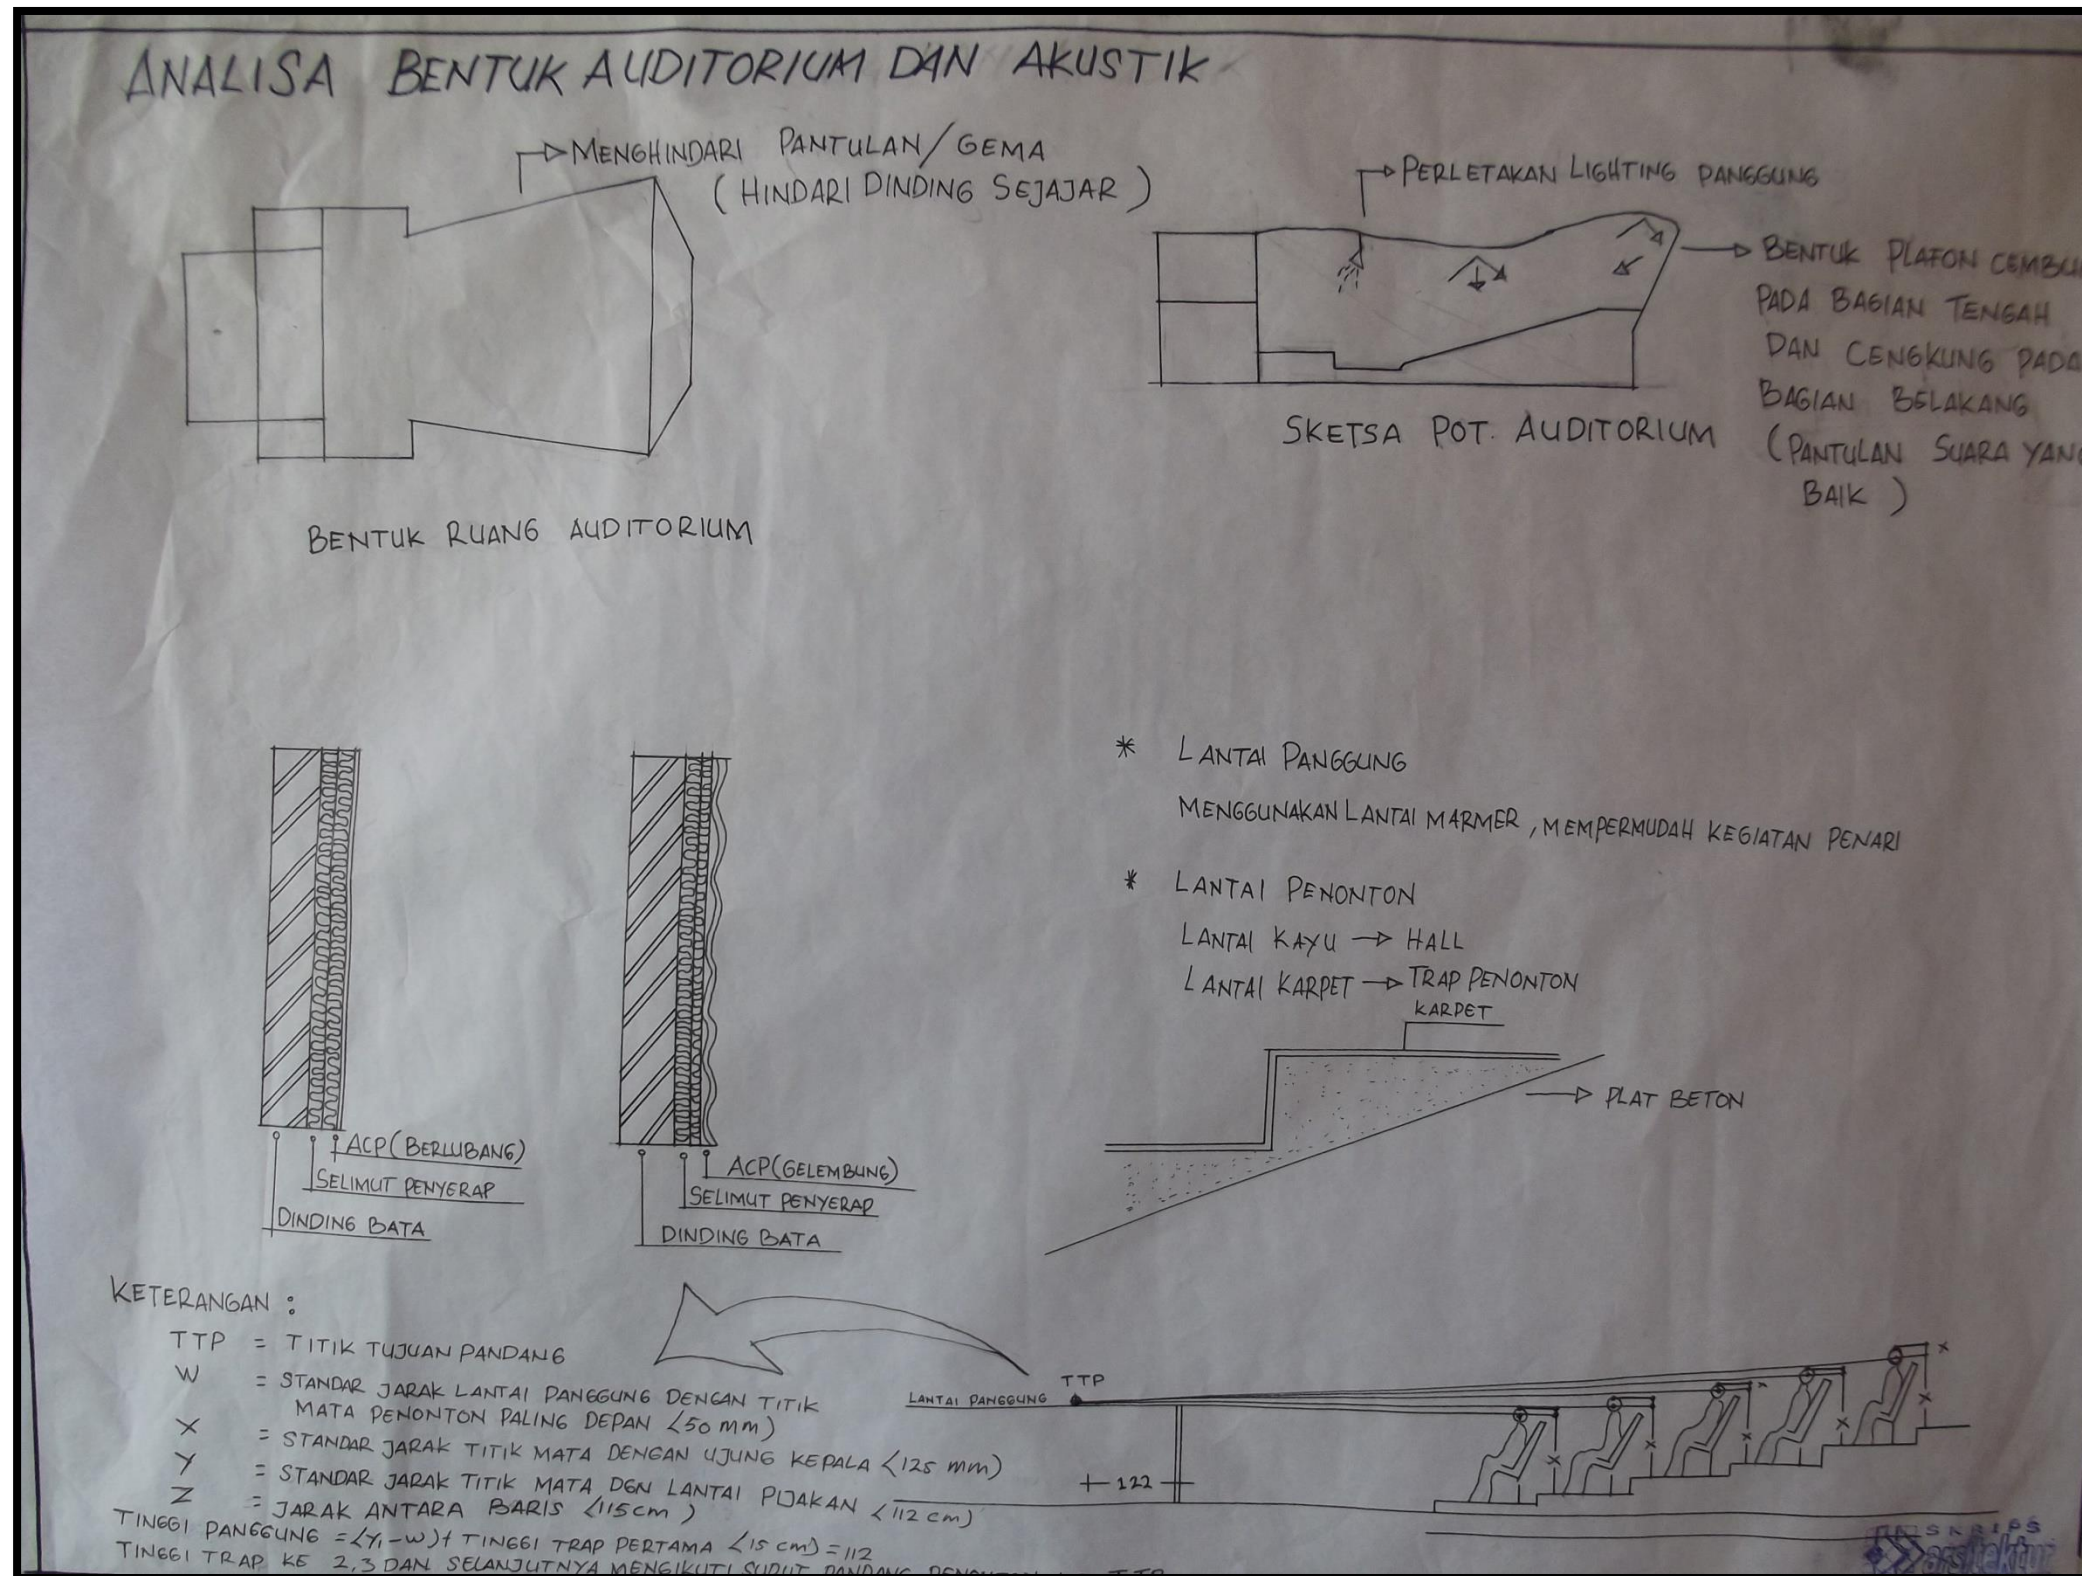 ANALISA BENTUK AUDITORIUM DAN AKUSTIK
MENGHINDARI PANTULAN/GEMA
(HINDARI DINDING SEJAJAR)
BENTUK RUANG AUDITORIUM
PERLETAKAN LIGHTING PANGGUNG
BENTUK PLAFON CEMBU
PADA BAGIAN TENGAH
DAN CENGKUNG PADA
BAGIAN BELAKANG
(PANTULAN SUARA YANG
BAIK)
SKETSA POT. AUDITORIUM
ACP(BERLUBANG)
SELIMUT PENYERAP
DINDING BATA
ACP(GELEMBUNG)
SELIMUT PENYERAP
DINDING BATA
* LANTAI PANGGUNG
MENGGUNAKAN LANTAI MARMER, MEMPERMUDAH KEGIATAN PENARI
* LANTAI PENONTON
LANTAI KAYU → HALL
LANTAI KARPET → TRAP PENONTON
KARPET
PLAT BETON
KETERANGAN :
TTP = TITIK TUJUAN PANDANG
W = STANDAR JARAK LANTAI PANGGUNG DENGAN TITIK
MATA PENONTON PALING DEPAN (50 mm)
X = STANDAR JARAK TITIK MATA DENGAN UJUNG KEPALA (125 mm)
Y = STANDAR JARAK TITIK MATA DGN LANTAI PIJAKAN (112 cm)
Z = JARAK ANTARA BARIS (115 cm)
TINGGI PANGGUNG = (Y1-W)+ TINGGI TRAP PERTAMA (15 cm) = 112
TINGGI TRAP KE 2,3 DAN SELANJUTNYA MENGIKUTI SUDUT PANDANG
LANTAI PANGGUNG
TTP
122
X
X
X
X
X
X
X
SKRIPS
arsitektur